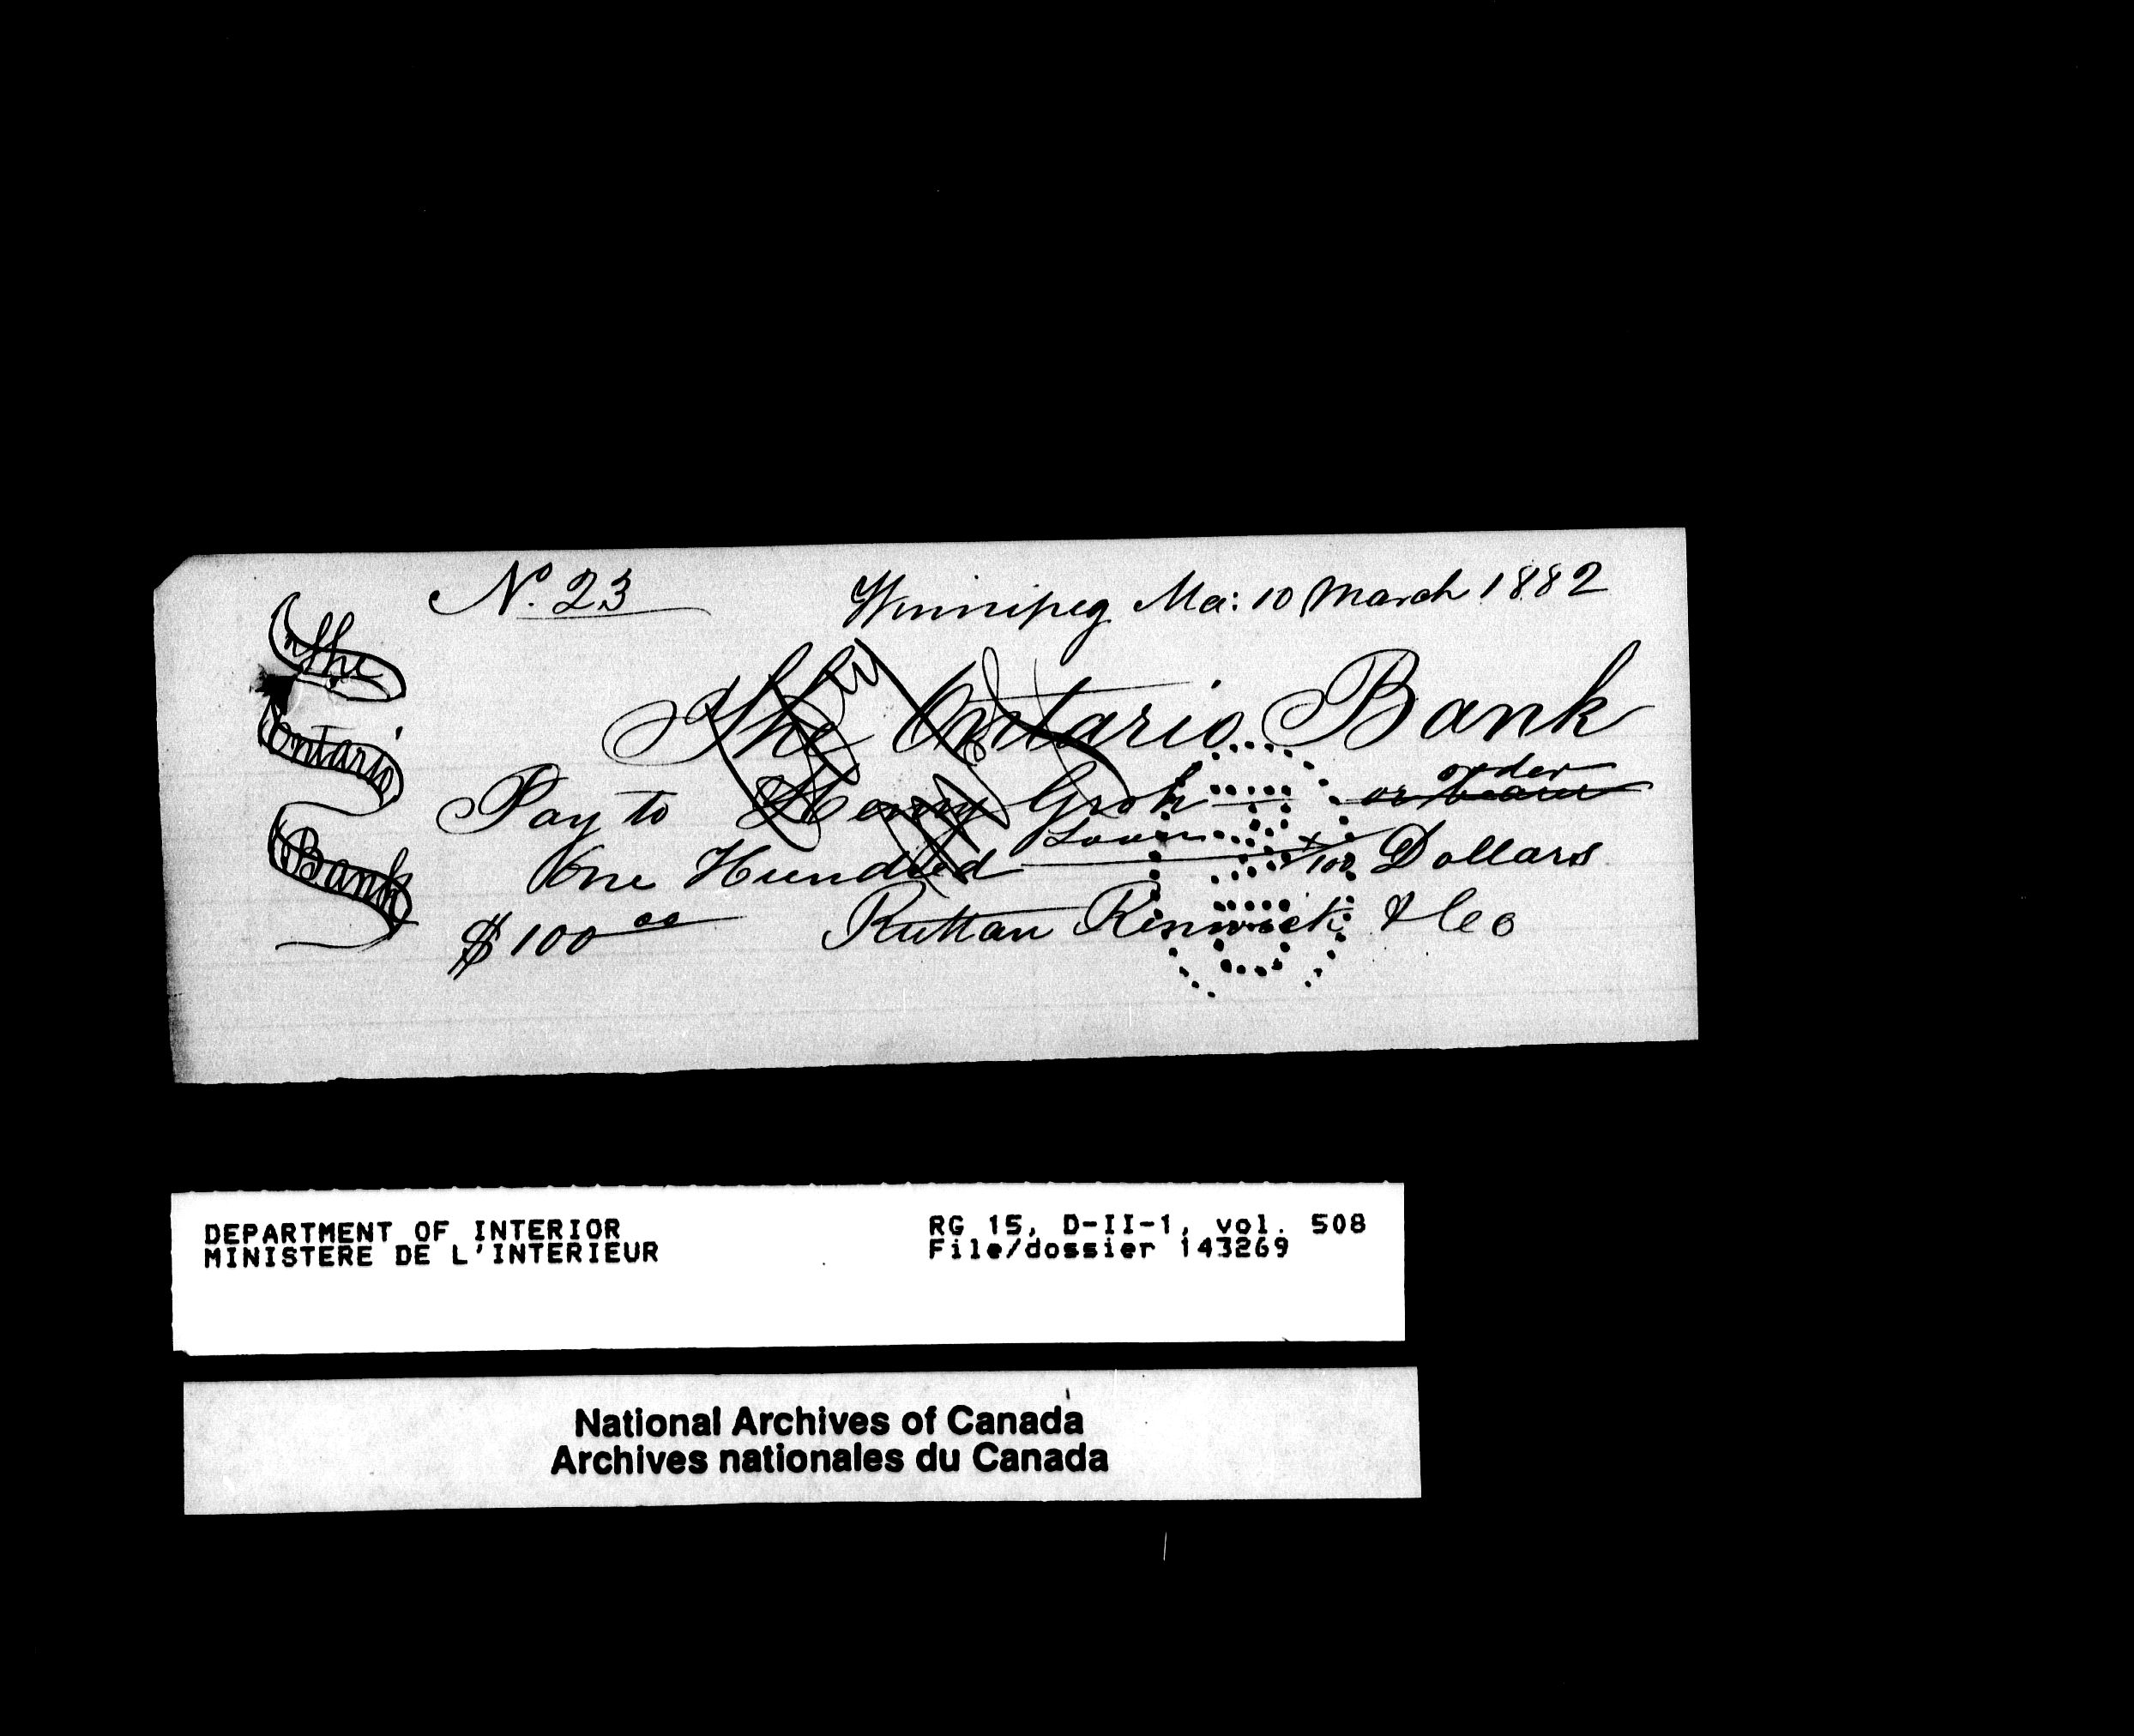 No. 23
Winnipeg Ma: 10 March 1882
The
Ontario
Bank
The Ontario Bank
Pay to Henry Groh order
or bearer
Loan
One Hundred x/100 Dollars
$100 00 Ruttan Renwick & Co
DEPARTMENT OF INTERIOR
MINISTERE DE L'INTERIEUR
RG 15, D-II-1, vol. 508
File/dossier 143269
National Archives of Canada
Archives nationales du Canada